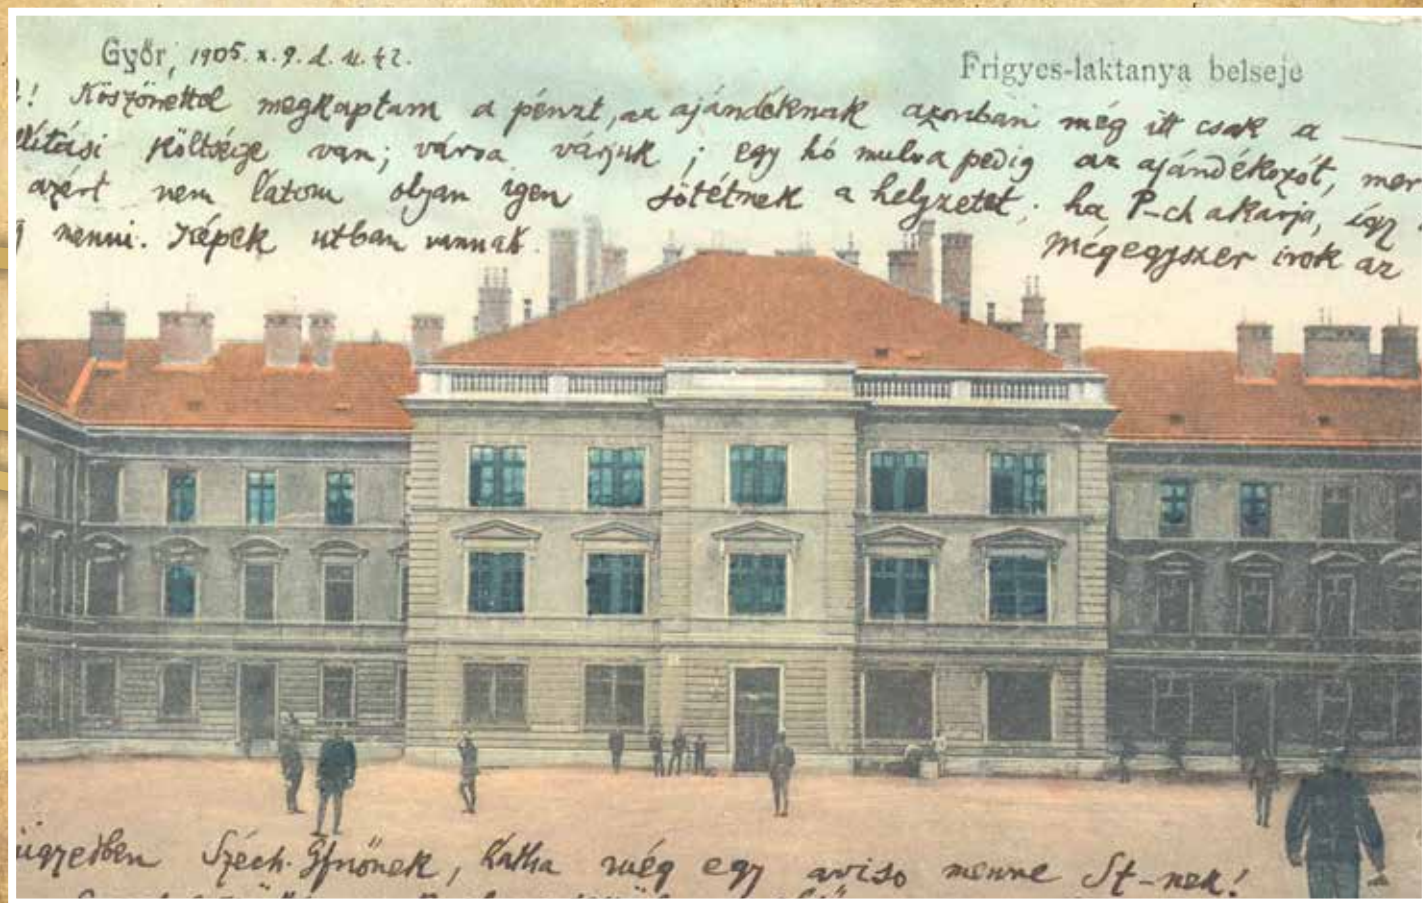 Győr, 1905. x. 9. d. u.
Frigyes-laktanya belseje
! Köszönettel megkaptam a pénzt, az ajándéknak azonban még itt csak a
lítási költsége van; várva várjuk; egy hó mulva pedig az ajándékozót, mer
azért nem látom olyan igen sötétnek a helyzetet; ha P-ch akarja, így
menni. Képek utban vannak. Mégegyszer irok az
ügyedben Széch. Gfnőnek, hátha még egy aviso menne St-nek!